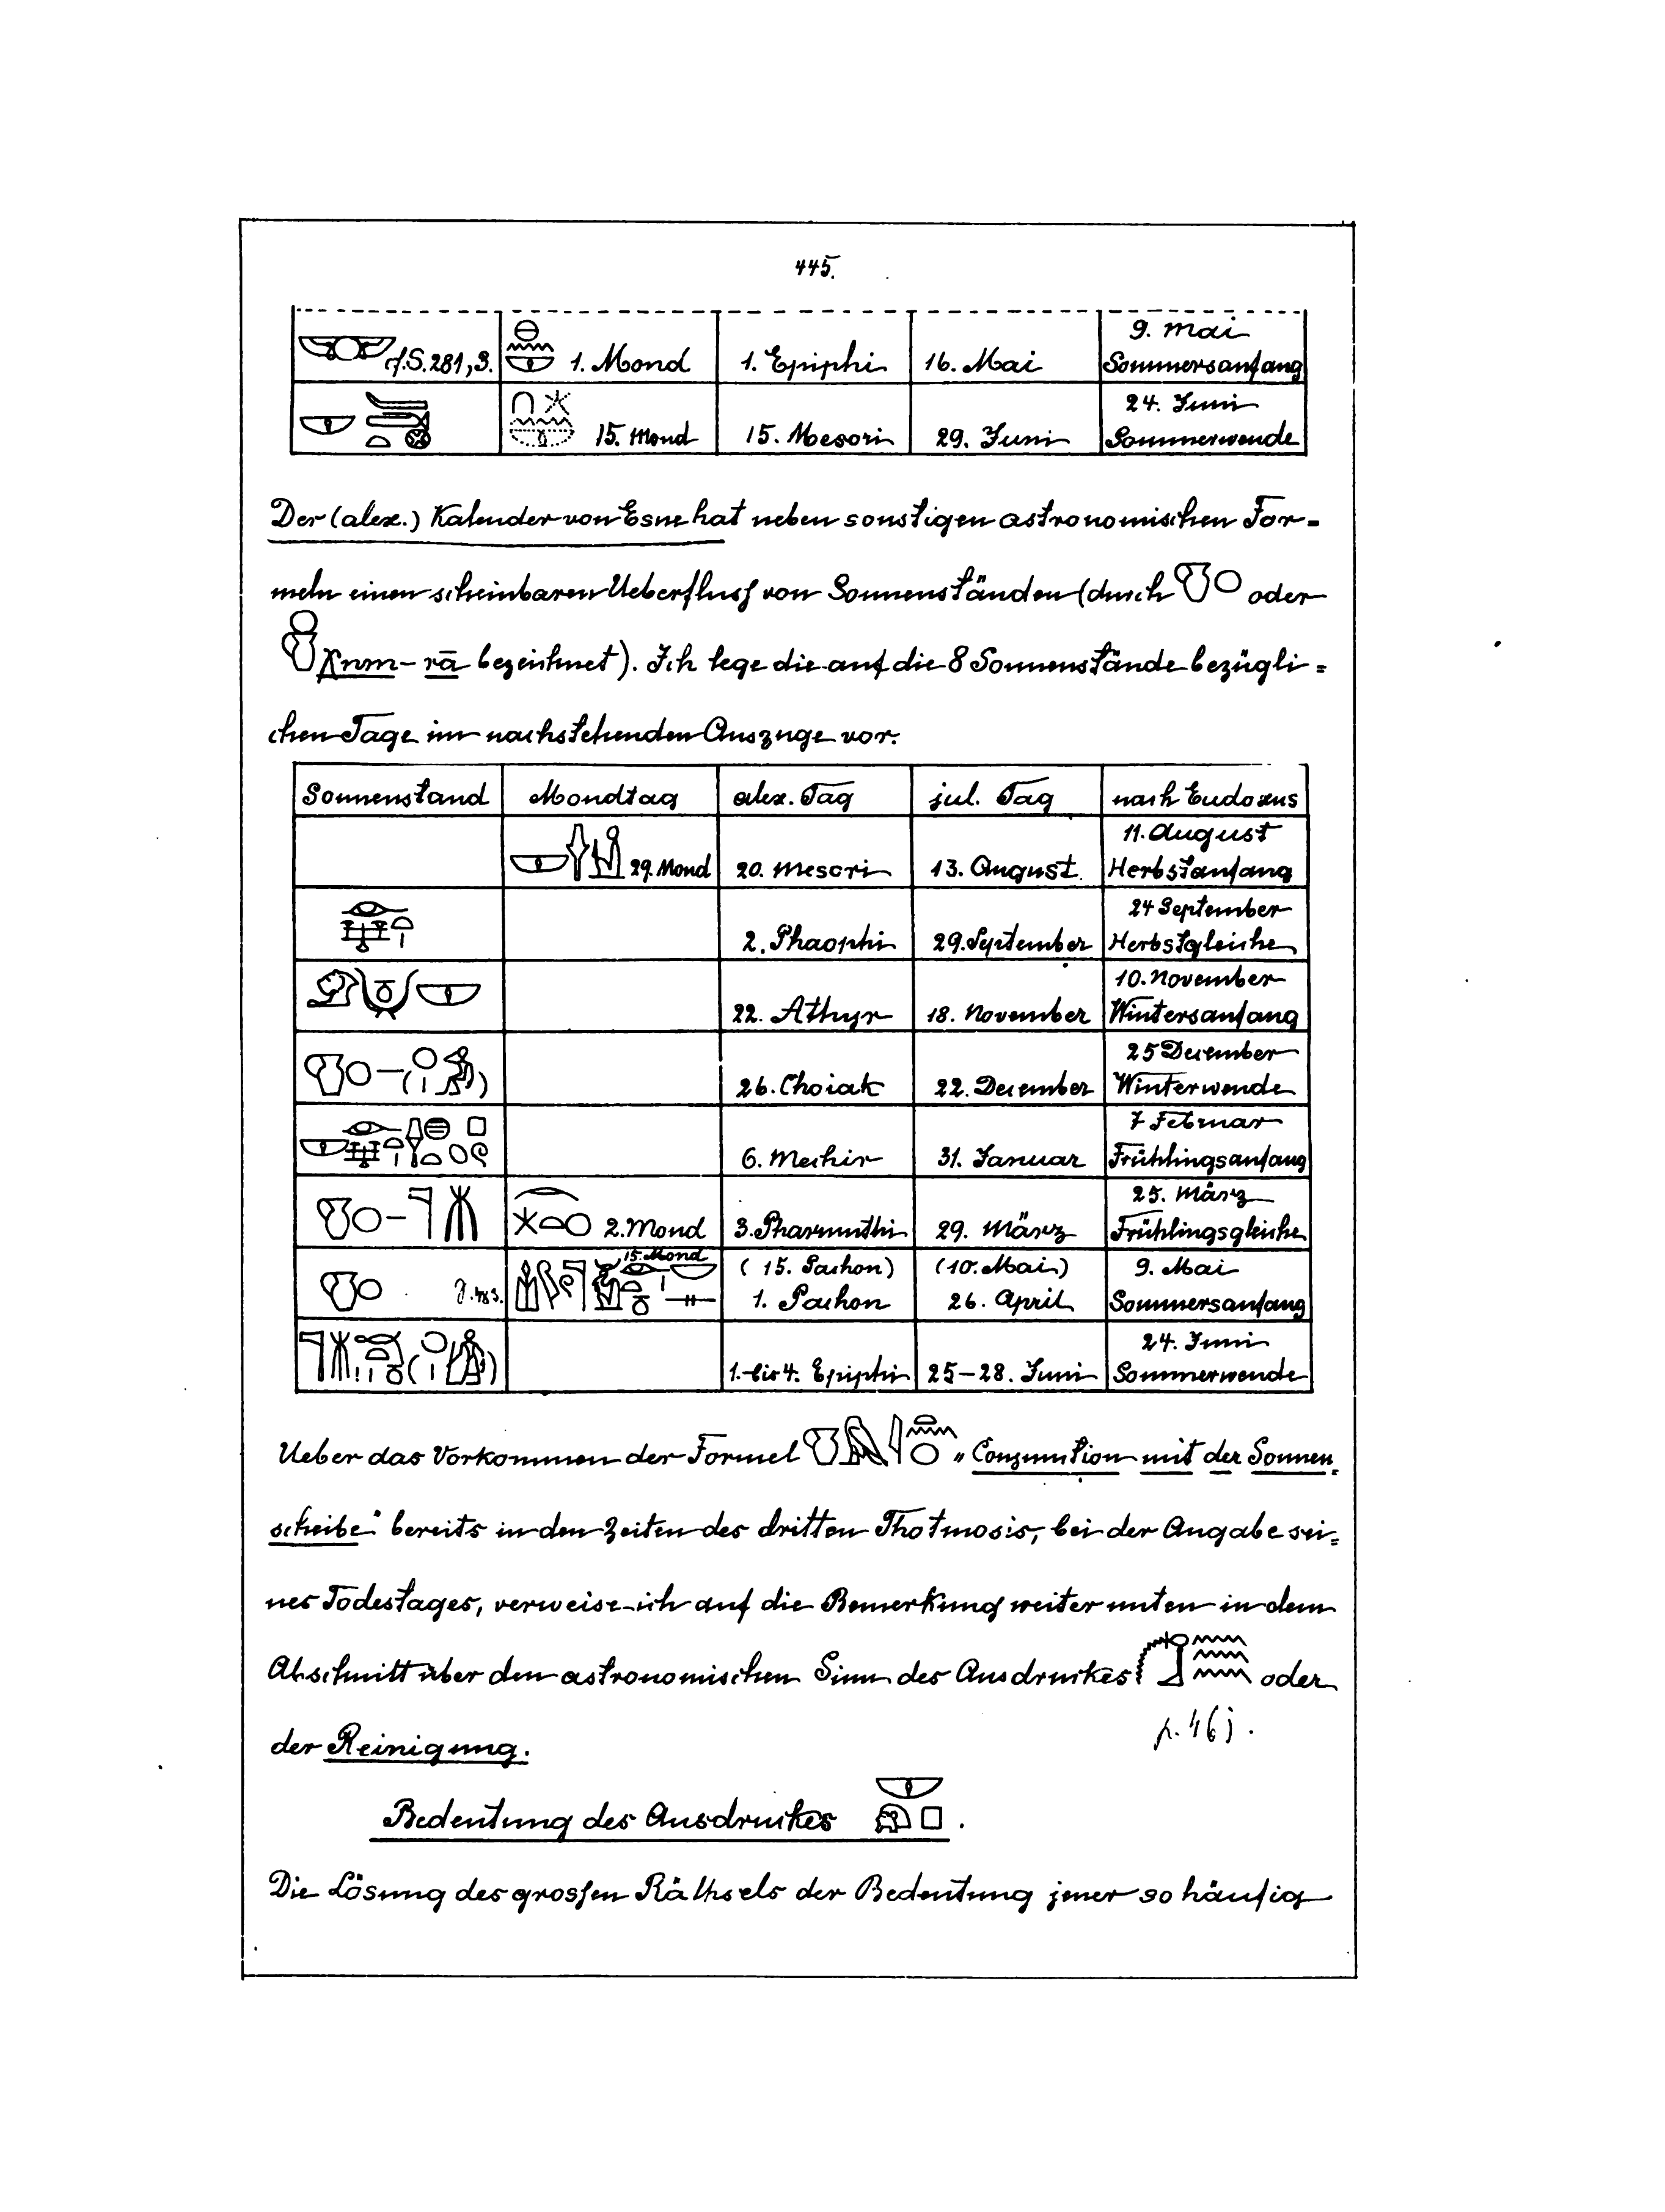 445.
cf. S. 281, 3. 1. Mond 1. Epiphi 16. Mai 9. Mai Sommersanfang
15. Mond 15. Mesori 29. Juni 24. Juni Sommerwende
Der (alex.) Kalender von Esne hat neben sonstigen astronomischen For=
meln einen scheinbaren Ueberfluss von Sonnenständen (durch oder
Xnm-rā bezeichnet). Ich lege die auf die 8 Sonnenstände bezügli=
chen Tage im nachstehenden Auszuge vor.
Sonnenstand Mondtag alex. Tag jul. Tag nach Eudoxus
29. Mond 20. Mesori 13. August 11. August Herbstanfang
2. Phaophi 29. September 24 September Herbstgleiche
22. Athyr 18. November 10. November Wintersanfang
26. Choiak 22. December 25 December Winterwende
6. Mechir 31. Januar 7 Februar Frühlingsanfang
2. Mond 3. Pharmuthi 29. März 25. März Frühlingsgleiche
15. Mond (15. Pachon) 1. Pachon (10. Mai) 26. April 9. Mai Sommersanfang
1. bis 4. Epiphi 25–28. Juni 24. Juni Sommerwende
Ueber das Vorkommen der Formel „Conjunction mit der Sonnen=
scheibe" bereits in den Zeiten des dritten Thotmosis, bei der Angabe sei=
nes Todestages, verweise ich auf die Bemerkung weiter unten in dem
Abschnitt über den astronomischen Sinn des Ausdruckes oder
der Reinigung.
Bedeutung des Ausdruckes .
Die Lösung des grossen Räthsels der Bedeutung jener so häufig